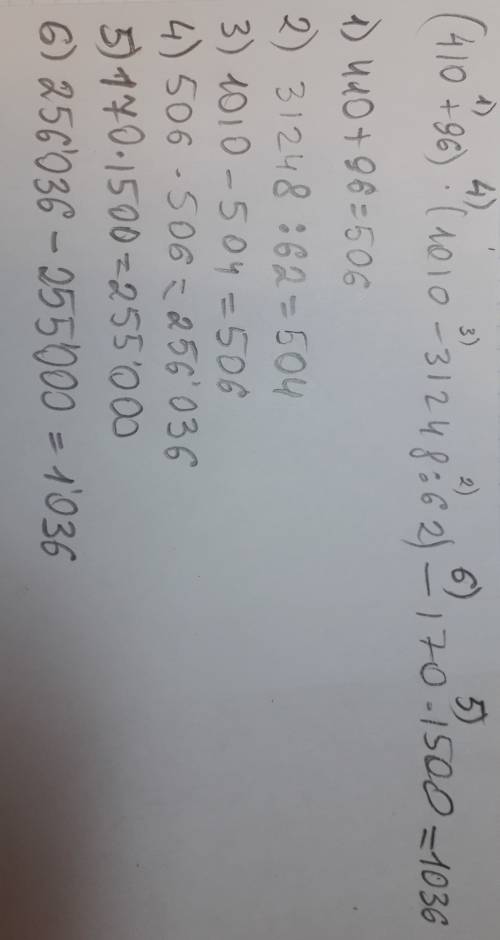 (410 + 96) · (1010 - 31248 : 62) - 170 · 1500 = 1036
1) 4) 3) 2) 6) 5)
1) 410 + 96 = 506
2) 31248 : 62 = 504
3) 1010 - 504 = 506
4) 506 · 506 = 256'036
5) 170 · 1500 = 255'000
6) 256'036 - 255'000 = 1'036